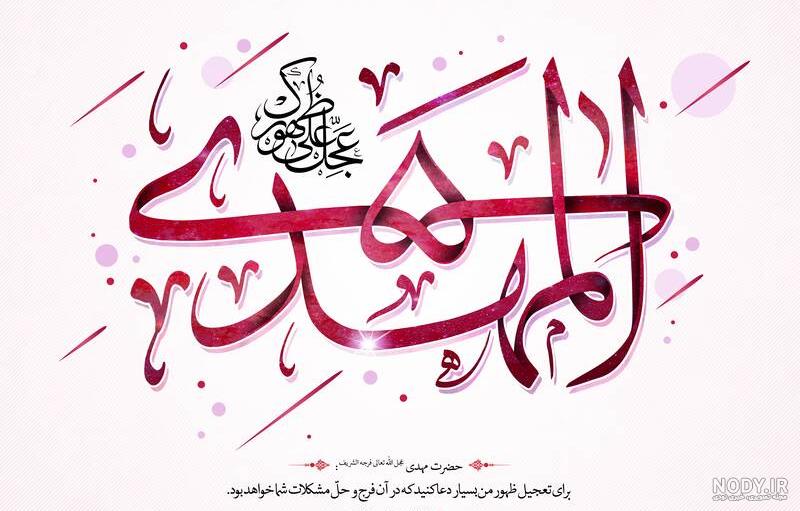 المهدی
عجل علی ظهورک
حضرت مهدی عجل الله تعالی فرجه الشریف:
برای تعجیل ظهور من بسیار دعا کنید که در آن فرج و حلّ مشکلات شما خواهد بود.
NODY.IR
مجله تصویری، خبری نودی